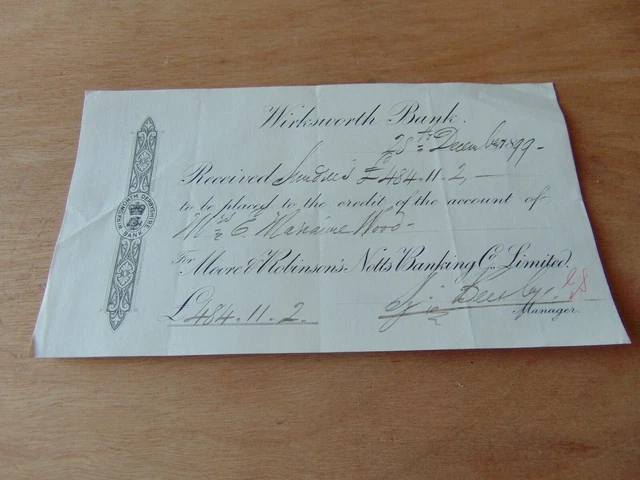 Wirksworth Bank.
28th December 1899-
Received Sundries £484.11.2,-
to be placed to the credit of the account of
Mrs E. Marianne Wood-
For Moore & Robinson's Notts Banking Co. Limited.
£484.11.2.
Manager.
WIRKSWORTH DERBYSHIRE
BANK